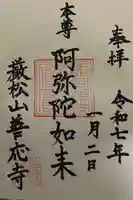 奉拝
令和七年
一月二日
本尊
阿弥陀如来
嚴松山善応寺